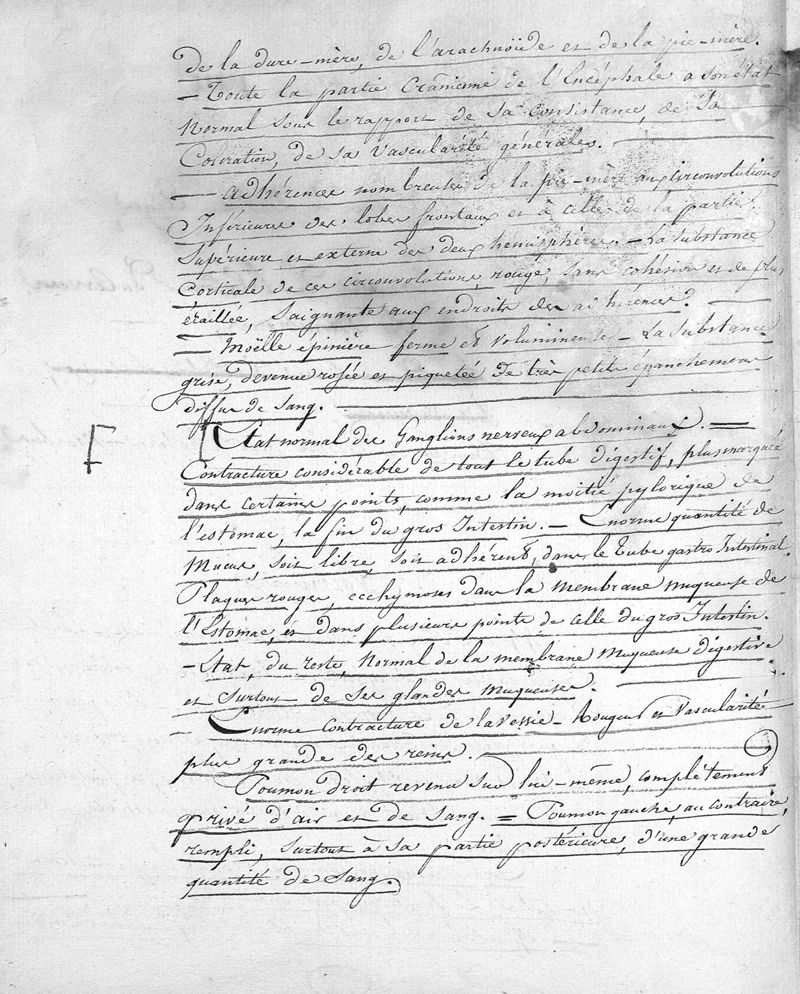 de la dure-mère, de l'arachnoïde et de la pie-mère.
— Toute la partie Cranienne de l'Encéphale a son état
Normal sous le rapport de sa Consistance, de sa
Coloration, de sa Vascularité générales.
— adhérences nombreuses de la pie-mère aux circonvolutions
Inférieures des lobes frontaux et à celles de la partie
Supérieure et externe des deux hémisphères. — La Substance
Corticale de ces circonvolutions, rouge, sans cohésion et de plus
éraillée, Saignante aux endroits des adhérences.
— Moëlle épinière ferme et volumineuse — La Substance
grise, devenue rosée et piquetée de très petits épanchemens
diffus de Sang.
F [Etat normal des Ganglions nerveux abdominaux. —
Contracture considérable de tout le tube digestif, plus marquée
dans certains points, comme la moitié pylorique de
l'estomac, la fin du gros Intestin. — Enorme quantité de
Mucus, soit libre, soit adhérent, dans le Tube gastro Intestinal.
Plaques rouges, ecchymoses dans la membrane muqueuse de
l'Estomac, et dans plusieurs points de celle du gros Intestin.
— Etat, du reste, Normal de la membrane Muqueuse digestive
et Surtout de ses glandes Muqueuses.
— Enorme Contracture de la Vessie — Rougeur et Vascularité
plus grande des reins.
Poumon droit revenu sur lui-même, complètement
privé d'air et de Sang. = Poumon gauche, au contraire,
rempli, Surtout à Sa partie postérieure, d'une grande
quantité de Sang.